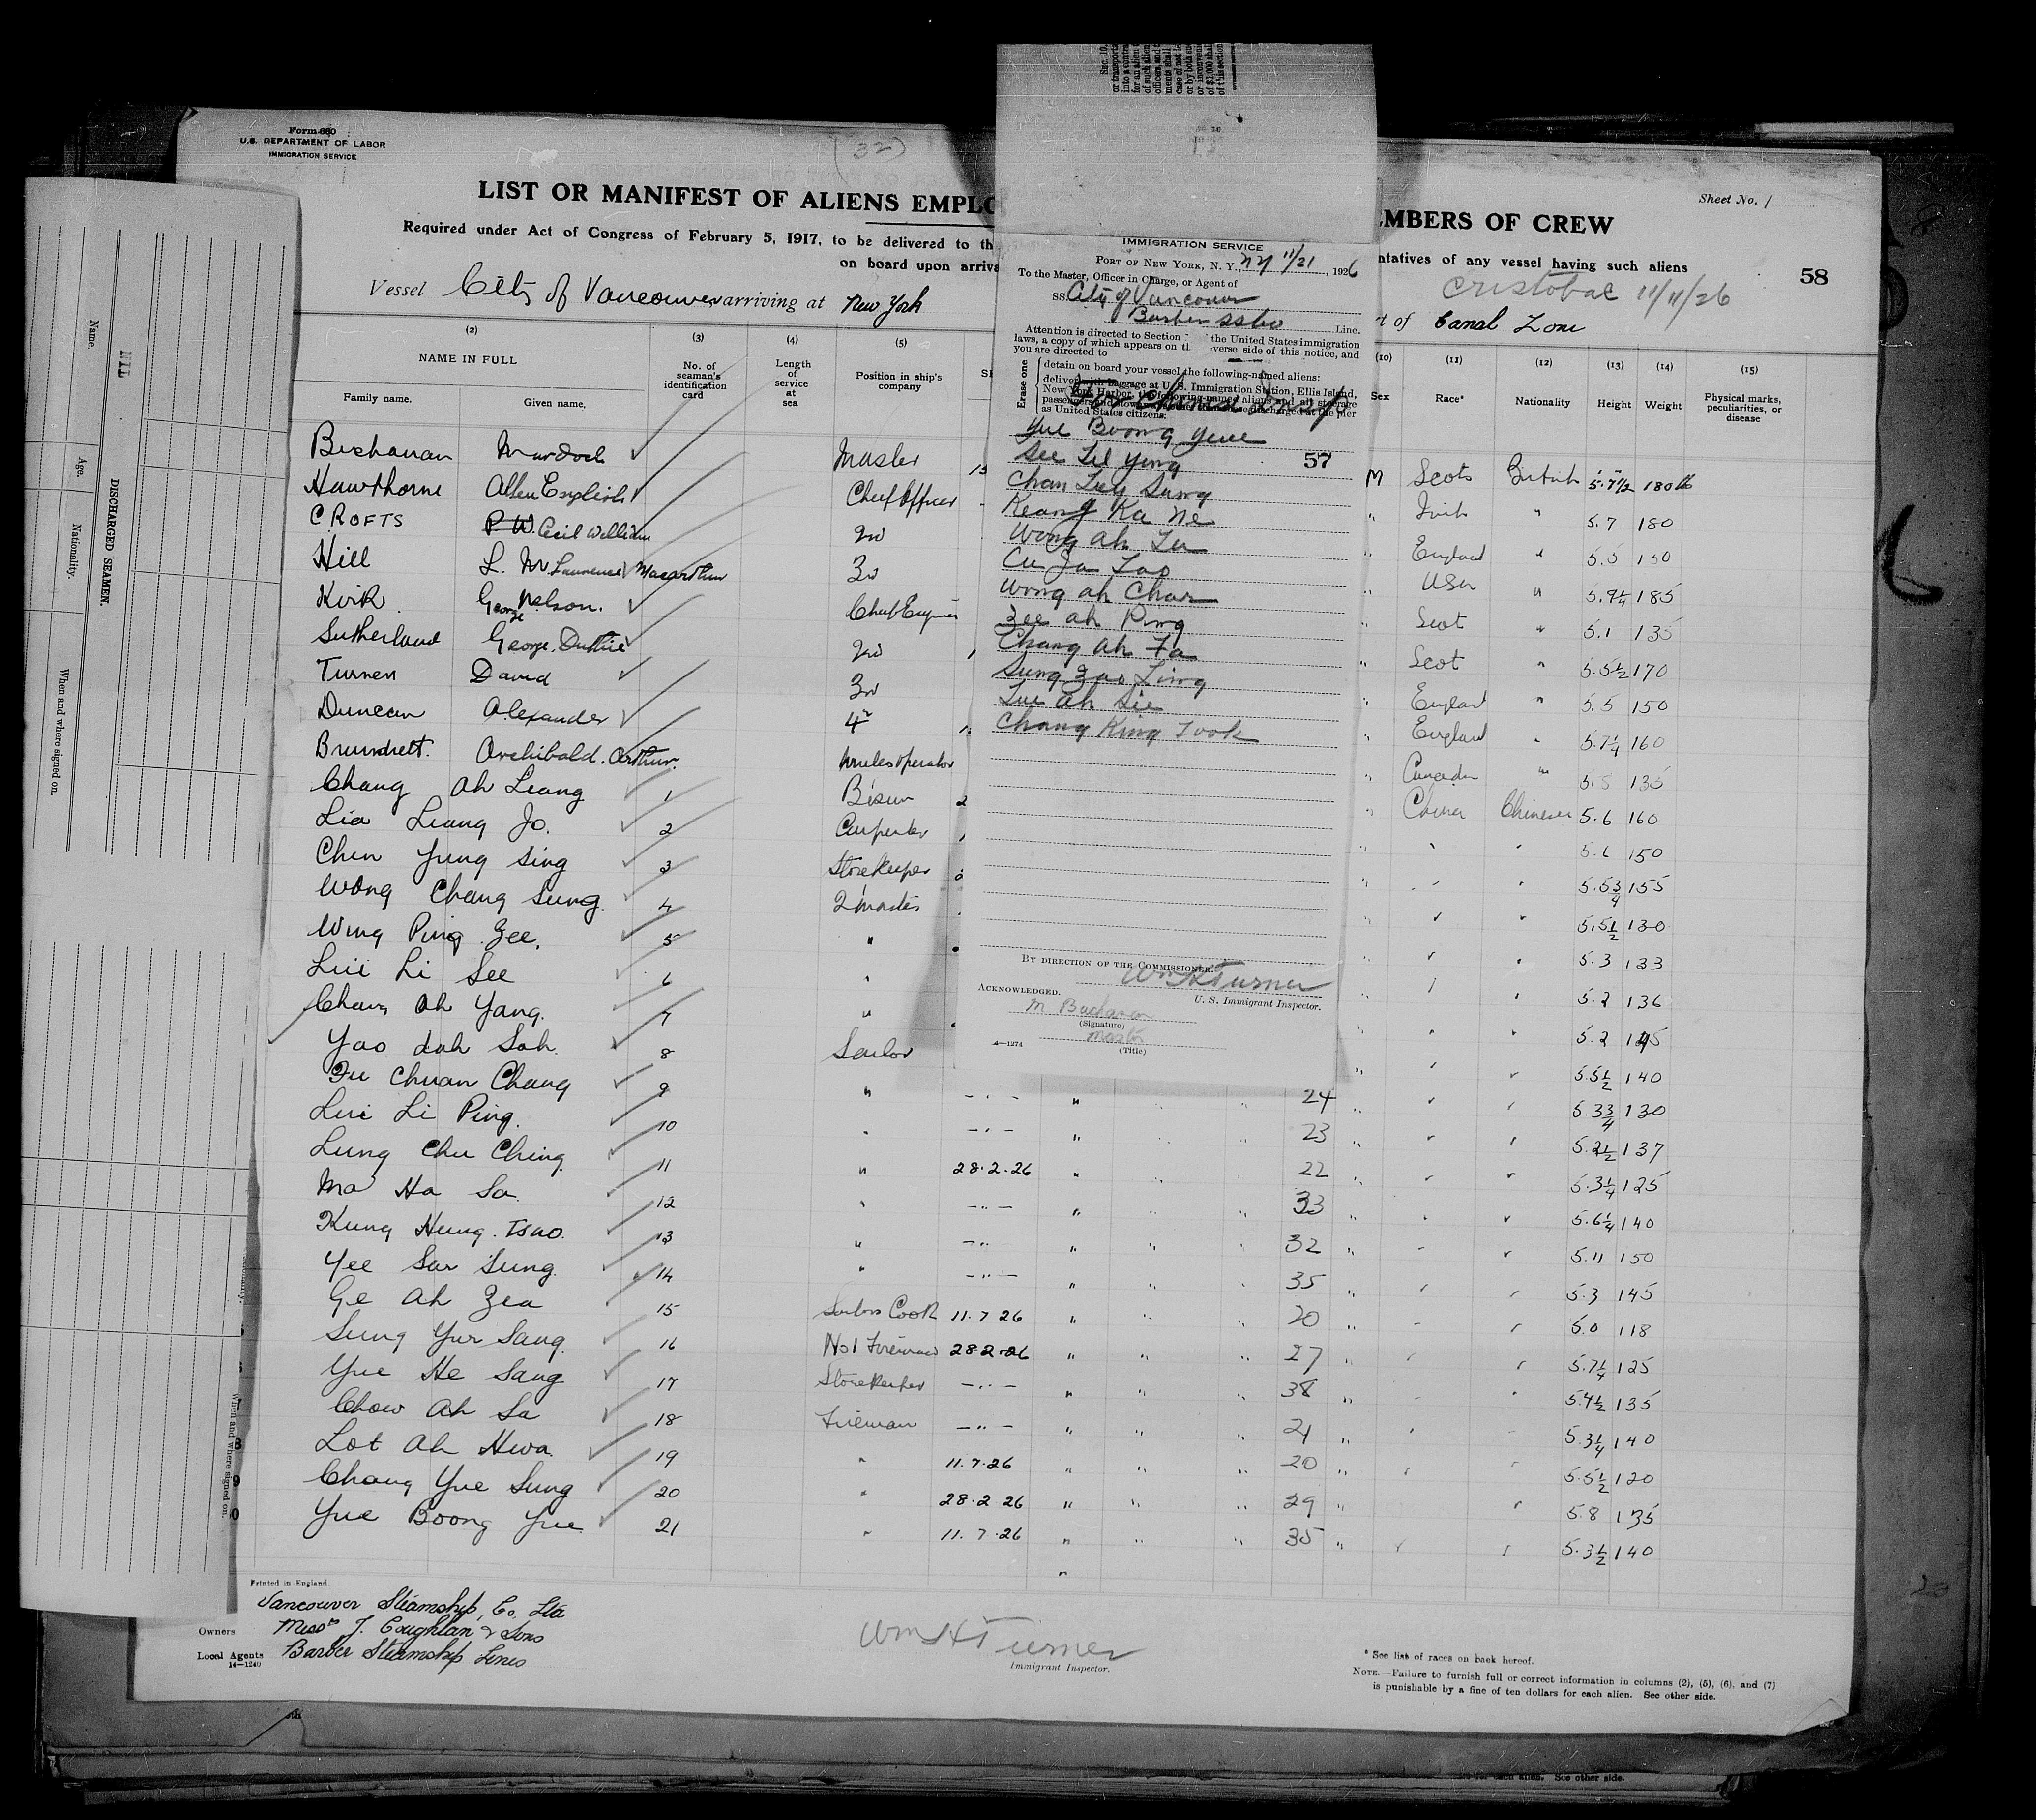 Form 680
U.S. DEPARTMENT OF LABOR
IMMIGRATION SERVICE
(32)
Sheet No. 1
LIST OR MANIFEST OF ALIENS EMPLO
EMBERS OF CREW
Required under Act of Congress of February 5, 1917, to be delivered to th
ntatives of any vessel having such aliens
on board upon arriva
58
Cristobal 11/11/26
Vessel City of Vancouver arriving at New York
rt of Canal Zone
(2) (3) (4) (5) (10) (11) (12) (13) (14) (15)
NAME IN FULL
Family name. Given name.
No. of seaman's identification card
Length of service at sea
Position in ship's company
Sex Race* Nationality Height Weight Physical marks, peculiarities, or disease
Buchanan Murdoch Master M Scots British 5.7 1/2 180 lb
Hawthorne Allen English Chief Officer " Irish " 5.7 180
CROFTS P.W. Cecil William 2nd " England " 5.5 150
Hill L. M. Laurence Macarthur 3rd " " 5.9 1/4 185
Kirk George Nelson. Chief Engineer " Scot " 5.1 135
Sutherland George. Duthie 2nd " Scot " 5.5 1/2 170
Turner David 3rd " England " 5.5 150
Duncan Alexander 4th " England " 5.7 1/4 160
Brundrett. Archibald. Arthur. Wireless operator " Canadian " 5.8 135
Chang Ah Leang 1 Bosun " China Chinese 5.6 160
Lia Liang Jo. 2 Carpenter 150
Chen Yung Sing 3 Storekeeper 5.5 3/4 155
Wong Chang Sung. 4 2 mates 5.5 1/2 130
Wing Ping Zee. 5 " 5.3 133
Lui Li See 6 " 5.2 136
Chang Ah Yang. 7 " 5.2 145
Yao dah Sah. 8 Sailor 5.5 1/2 140
Fu Chuan Chang 9 " " 24 5.3 3/4 130
Lui Li Ping. 10 " " 23 5.2 1/2 137
Lung Chu Ching. 11 " 28.2.26 " 22 5.3 1/4 125
Ma Ha Sa. 12 " " 33 5.6 1/4 140
Kung Hung. Tsao. 13 " " 32 5.11 150
Yee Sar Sung. 14 " " 35 5.3 145
Ge Ah Zea 15 Sailors Cook 11.7 26 " 20 5.0 118
Sung Yur Sang. 16 No1 Fireman 28.2.26 " 27 5.7 1/4 125
Yue He Sang 17 Storekeeper " 38 5.4 1/2 135
Chow Ah Sa 18 Fireman " 21 5.3 1/4 140
Lot Ah Hwa. 19 " 11.7.26 " 20 5.5 1/2 120
Chang Yue Sung 20 " 28.2 26 " 29 5.8 135
Yue Boong Yue 21 " 11.7.26 " 35 5.3 1/2 140
Printed in England.
Vancouver Steamship, Co. Ltd
Owners Messrs J. Coughlan & Sons
Local Agents Barber Steamship Lines
14—1240
Wm H Turner
Immigrant Inspector.
* See list of races on back hereof.
NOTE.—Failure to furnish full or correct information in columns (2), (5), (6), and (7)
is punishable by a fine of ten dollars for each alien. See other side.
IMMIGRATION SERVICE
PORT OF NEW YORK, N. Y., NY 11/21, 1926
To the Master, Officer in Charge, or Agent of
SS. City of Vancouver
Barber SS Co Line.
Attention is directed to Section the United States immigration
laws, a copy of which appears on th verse side of this notice, and
you are directed to
Erase one
detain on board your vessel the following-named aliens:
deliver with baggage at U. S. Immigration Station, Ellis Island,
New York Harbor, the following-named aliens and all steerage
as United States citizens:
Yue Boong Yeue
57
See Lil Ying
Chan Luy Sung
Keang Ka Ne
Wong Ah Lu
Cu Ja Lao
Wong Ah Char
Zee Ah Ping
Chang Ah Fa
Sung Zao Ling
Lue Ah Sie
Chang King Fook
BY DIRECTION OF THE COMMISSIONER:
Wm H Turner
U. S. Immigrant Inspector.
ACKNOWLEDGED.
M Buchanan
(Signature)
Master
(Title)
4—1274
Name.
Age.
Nationality.
When and where signed on.
NIL
DISCHARGED SEAMEN.
When and where signed on.
for each alien. See other side.